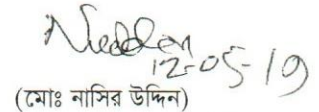 12-05-19
(মোঃ নাসির উদ্দিন)